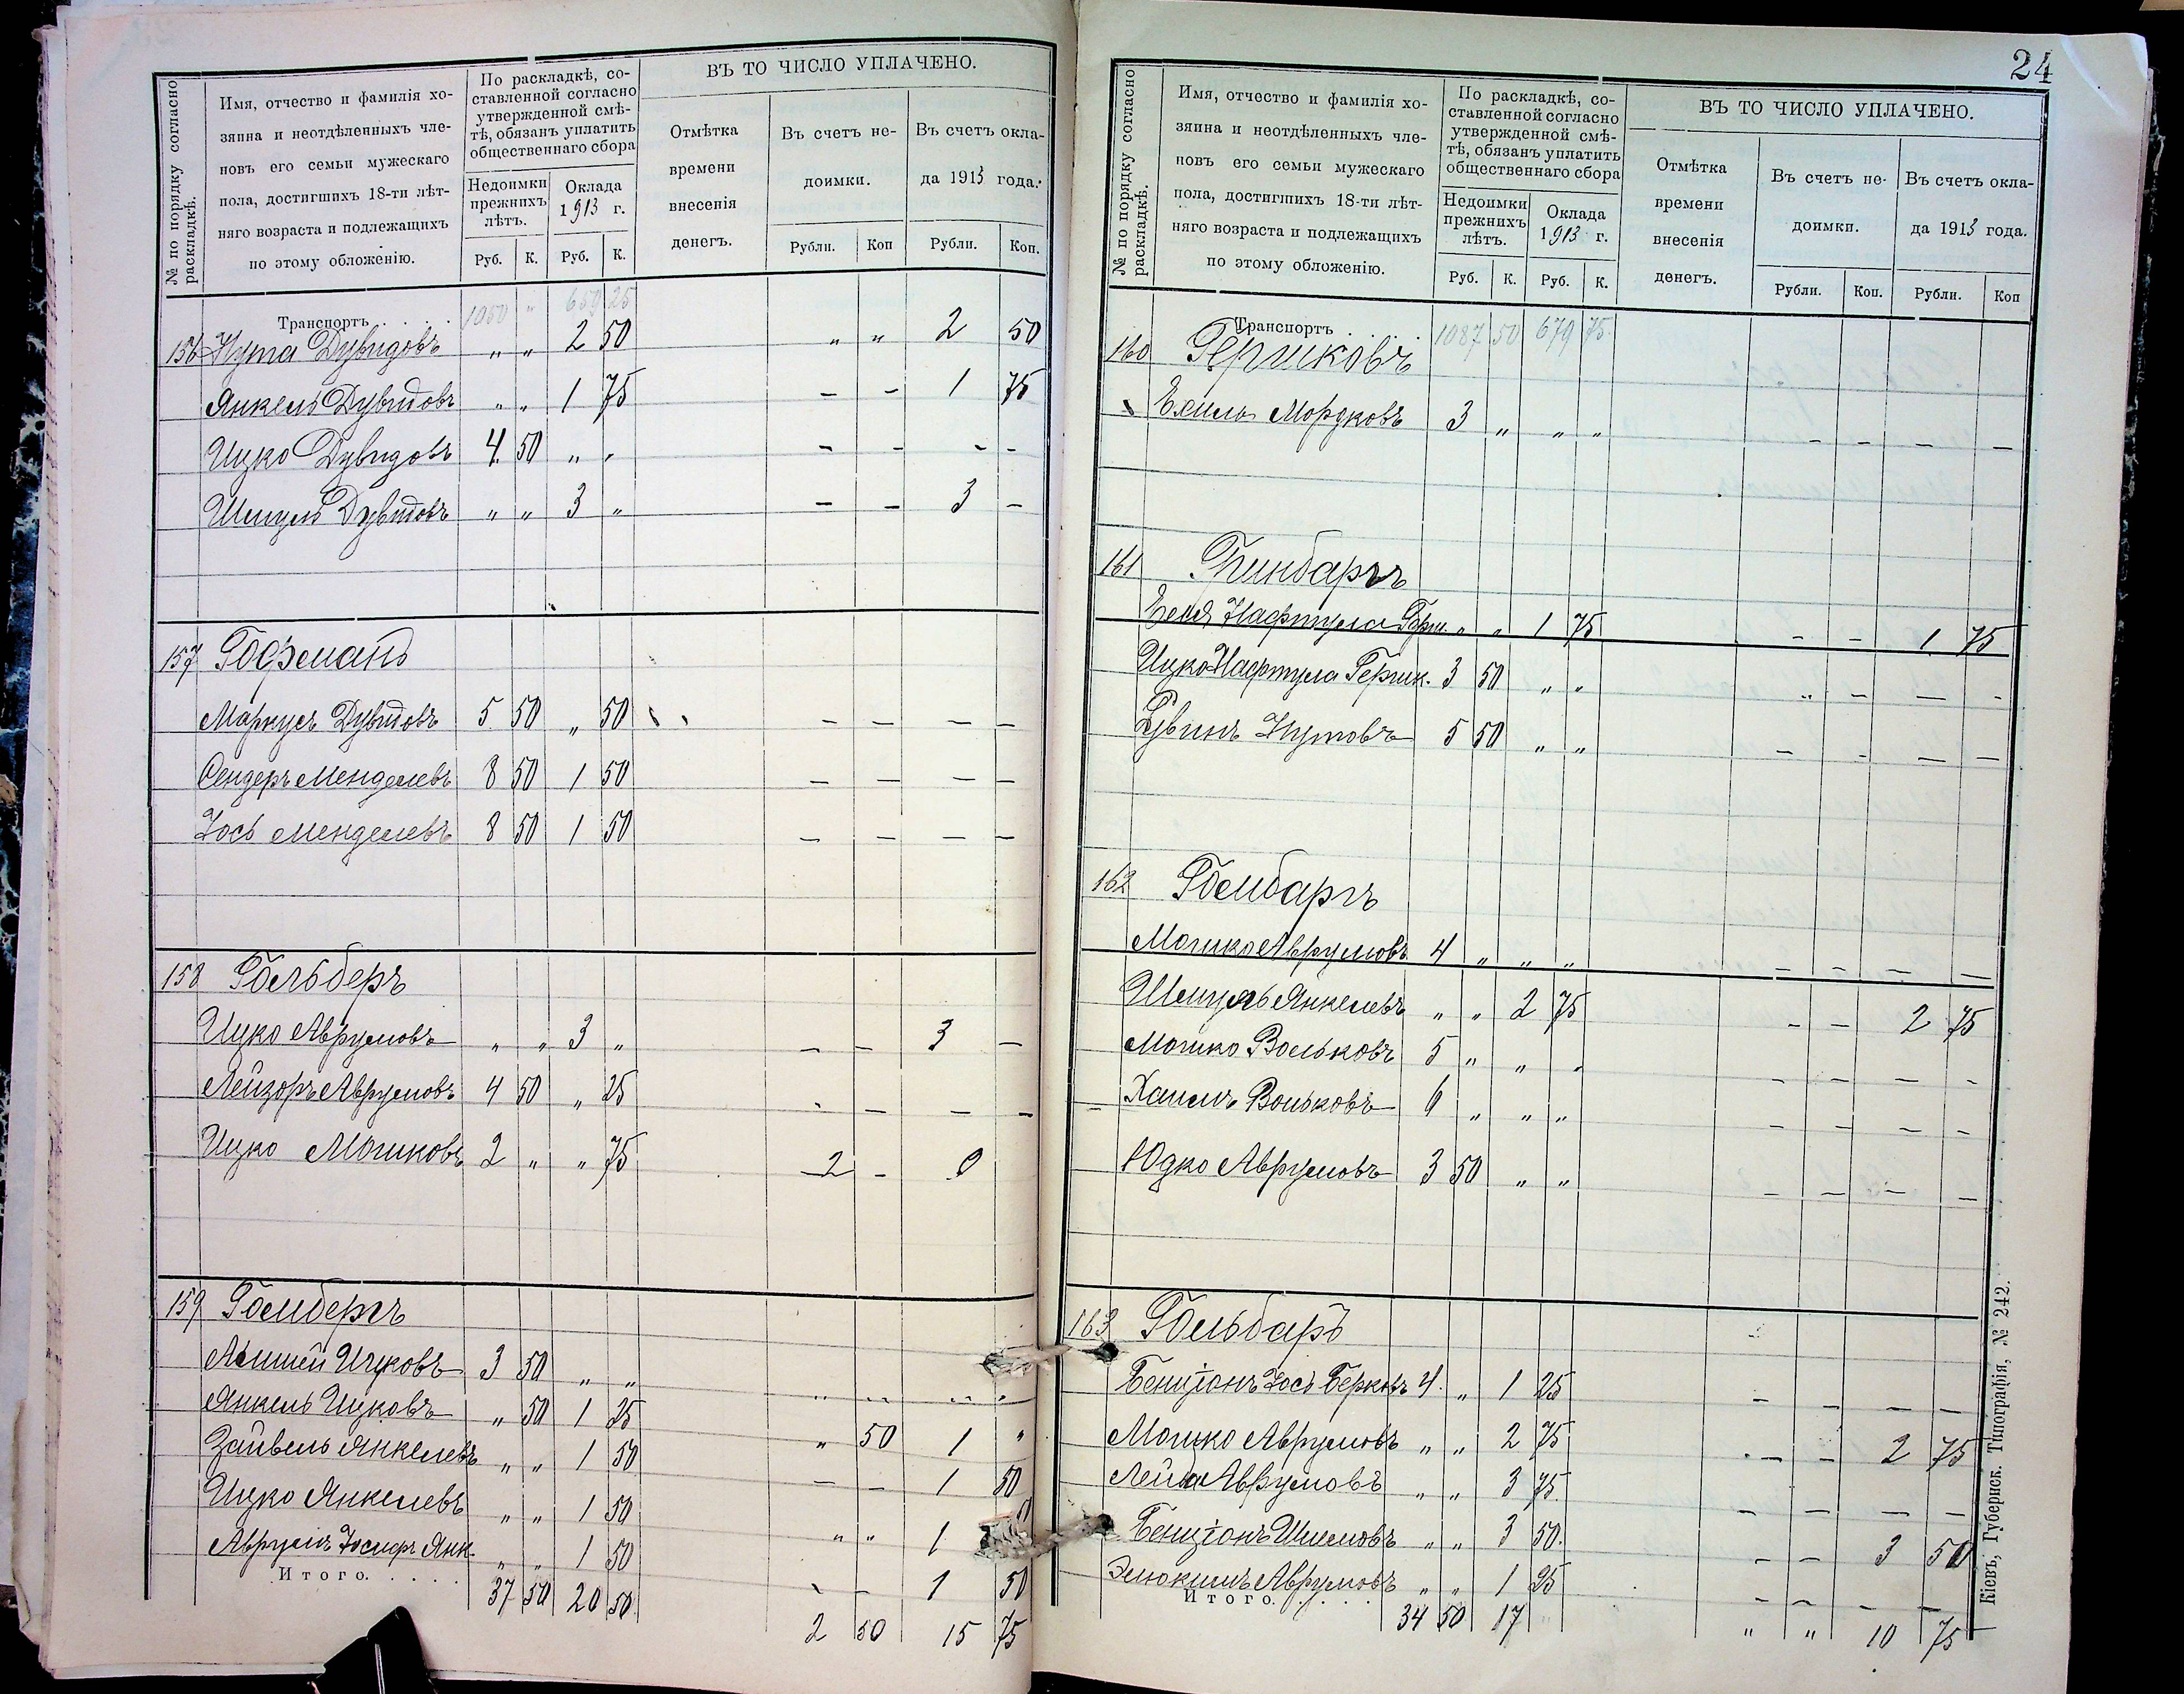 № по порядку согласно раскладкѣ.
Имя, отчество и фамилія хозяина и неотдѣленныхъ членовъ его семьи мужескаго пола, достигшихъ 18-ти лѣтняго возраста и подлежащихъ по этому обложенію.
По раскладкѣ, составленной согласно утвержденной смѣтѣ, обязанъ уплатить общественнаго сбора
Недоимки прежнихъ лѣтъ.
Оклада 1913 г.
Руб. К. Руб. К.
ВЪ ТО ЧИСЛО УПЛАЧЕНО.
Отмѣтка времени внесенія денегъ.
Въ счетъ недоимки.
Въ счетъ оклада 1913 года.
Рубли. Коп Рубли. Коп.
Транспортъ . . . . 1050 „ 659 25
156 Нута Дувидовъ „ „ 2 50 „ „ 2 50
Янкель Дувидовъ „ „ 1 75 – – 1 75
Ицко Дувидовъ 4 50 „ „ – – – –
Шмуль Дувидовъ „ „ 3 „ – – 3 –
157 Гофманъ
Маркусъ Дувидовъ 5 50 „ 50 – – – –
Сендеръ Менделевъ 8 50 1 50 – – – –
Іось Менделевъ 8 50 1 50 – – – –
158 Гольберъ
Ицко Аврумовъ „ „ 3 „ – – 3 –
Лейзоръ Аврумовъ 4 50 „ 25 – – – –
Ицко Мошковъ 2 „ „ 75 2 – 0
159 Голмбергъ
Ицковъ 3 50 „ „ „ „ „ „
Янкель Ицковъ „ 50 1 25 „ 50 1 „
Зайвель Янкелевъ „ „ 1 50 – – 1 50
Ицко Янкелевъ „ „ 1 50 „ „ 1
Аврумъ Іосифъ Янк. „ „ 1 50 – – 1 50
Итого. . . . . 37 50 20 50 2 50 15 75
24
№ по порядку согласно раскладкѣ.
Имя, отчество и фамилія хозяина и неотдѣленныхъ членовъ его семьи мужескаго пола, достигшихъ 18-ти лѣтняго возраста и подлежащихъ по этому обложенію.
По раскладкѣ, составленной согласно утвержденной смѣтѣ, обязанъ уплатить общественнаго сбора
Недоимки прежнихъ лѣтъ.
Оклада 1913 г.
Руб. К. Руб. К.
ВЪ ТО ЧИСЛО УПЛАЧЕНО.
Отмѣтка времени внесенія денегъ.
Въ счетъ недоимки.
Въ счетъ оклада 1913 года.
Рубли. Коп. Рубли. Коп
Транспортъ . . . . 1087 50 679 75
160 Гершковъ
Ехиль Мордковъ 3 „ „ „ – – – –
161 Гинбаргъ
Беня Нафтула Герш. „ „ 1 75 – – 1 75
Ицко Нафтула Гершк. 3 50 „ „ „ – – –
Рувинъ Нутовъ 5 50 „ „ – – – –
162 Голмбаргъ
Мошко Аврумовъ 4 „ „ „ – – – –
Шмуль Янкелевъ „ „ 2 75 – – 2 75
Мошко Вольковъ 5 „ „ „ – – – –
Хаимъ Вольковъ 6 „ „ „ – – – –
Юдко Аврумовъ 3 50 „ „ – – – –
163 Гольбаръ
Бенціонъ Іось Берковъ 4 „ 1 25 – – – –
Мошко Аврумовъ „ „ 2 75 – – 2 75
Лейба Аврумовъ „ „ 3 75 – – – –
Бенціонъ Шмелovъ „ „ 3 50 – – 3 50
Элюкимъ Аврумовъ „ „ 1 25 – – – –
Итого. . . . . 34 50 17 „ „ „ 10 75
Кіевъ, Губернск. Типографія, № 242.